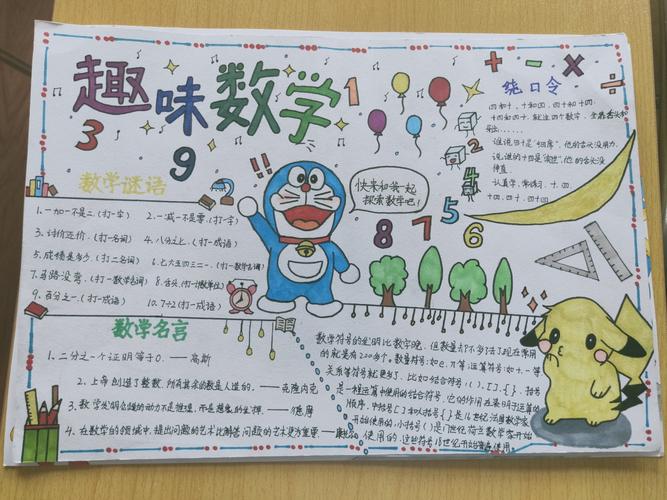 趣味数学
3
9
1
2
4
5
8 7 6
+ - × ÷
绕口令
四和十,十和四,四十和十四,
十四和四十,
谁说四十是
他的舌头没用力.
认真学,常练习,十、四、
十四、四十、四十四
快来和我一起
探索数学吧!
!!
数学谜语
1.一加一不是二.(打一字) 2.一减一不是零.(打一字)
3.讨价还价.(打一名词) 4.八分之七.(打一成语)
5.成绩是多少.(打二名词) 6.七大五四三二一.(打一数学名词)
7.马路没弯.(打一数学名词) 8.舌头.(打一计数单位)
9.百分之一.(打一成语) 10.7÷2(打一成语)
数学名言
1.二分之一个证明等于0.——高斯
2.上帝创造了整数,所有其余的数都是人造的.——克隆内克
3.数学发明创造的动力不是推理,而是想象力的发挥.——德摩
4.在数学的领域中,提出问题的艺术比解答问题的艺术更为重要.——康托尔
数学符号的发明比数字晚,但数量却不少了现在常用
的就是有200多个.数量符号:如e.不等;运算符号:如+.-等
关系等符号就更多了.比如结合符号:( ).[ ].{ }.括号
是一种运算中使用的结合符号,它的作用在表明了运算的
顺序.中括号[ ]和大括号{ }是16世纪法国数学家
开始使用的,小括号( )是17世纪荷兰数学家开始
使用的.这些符号18世纪开始普遍使用